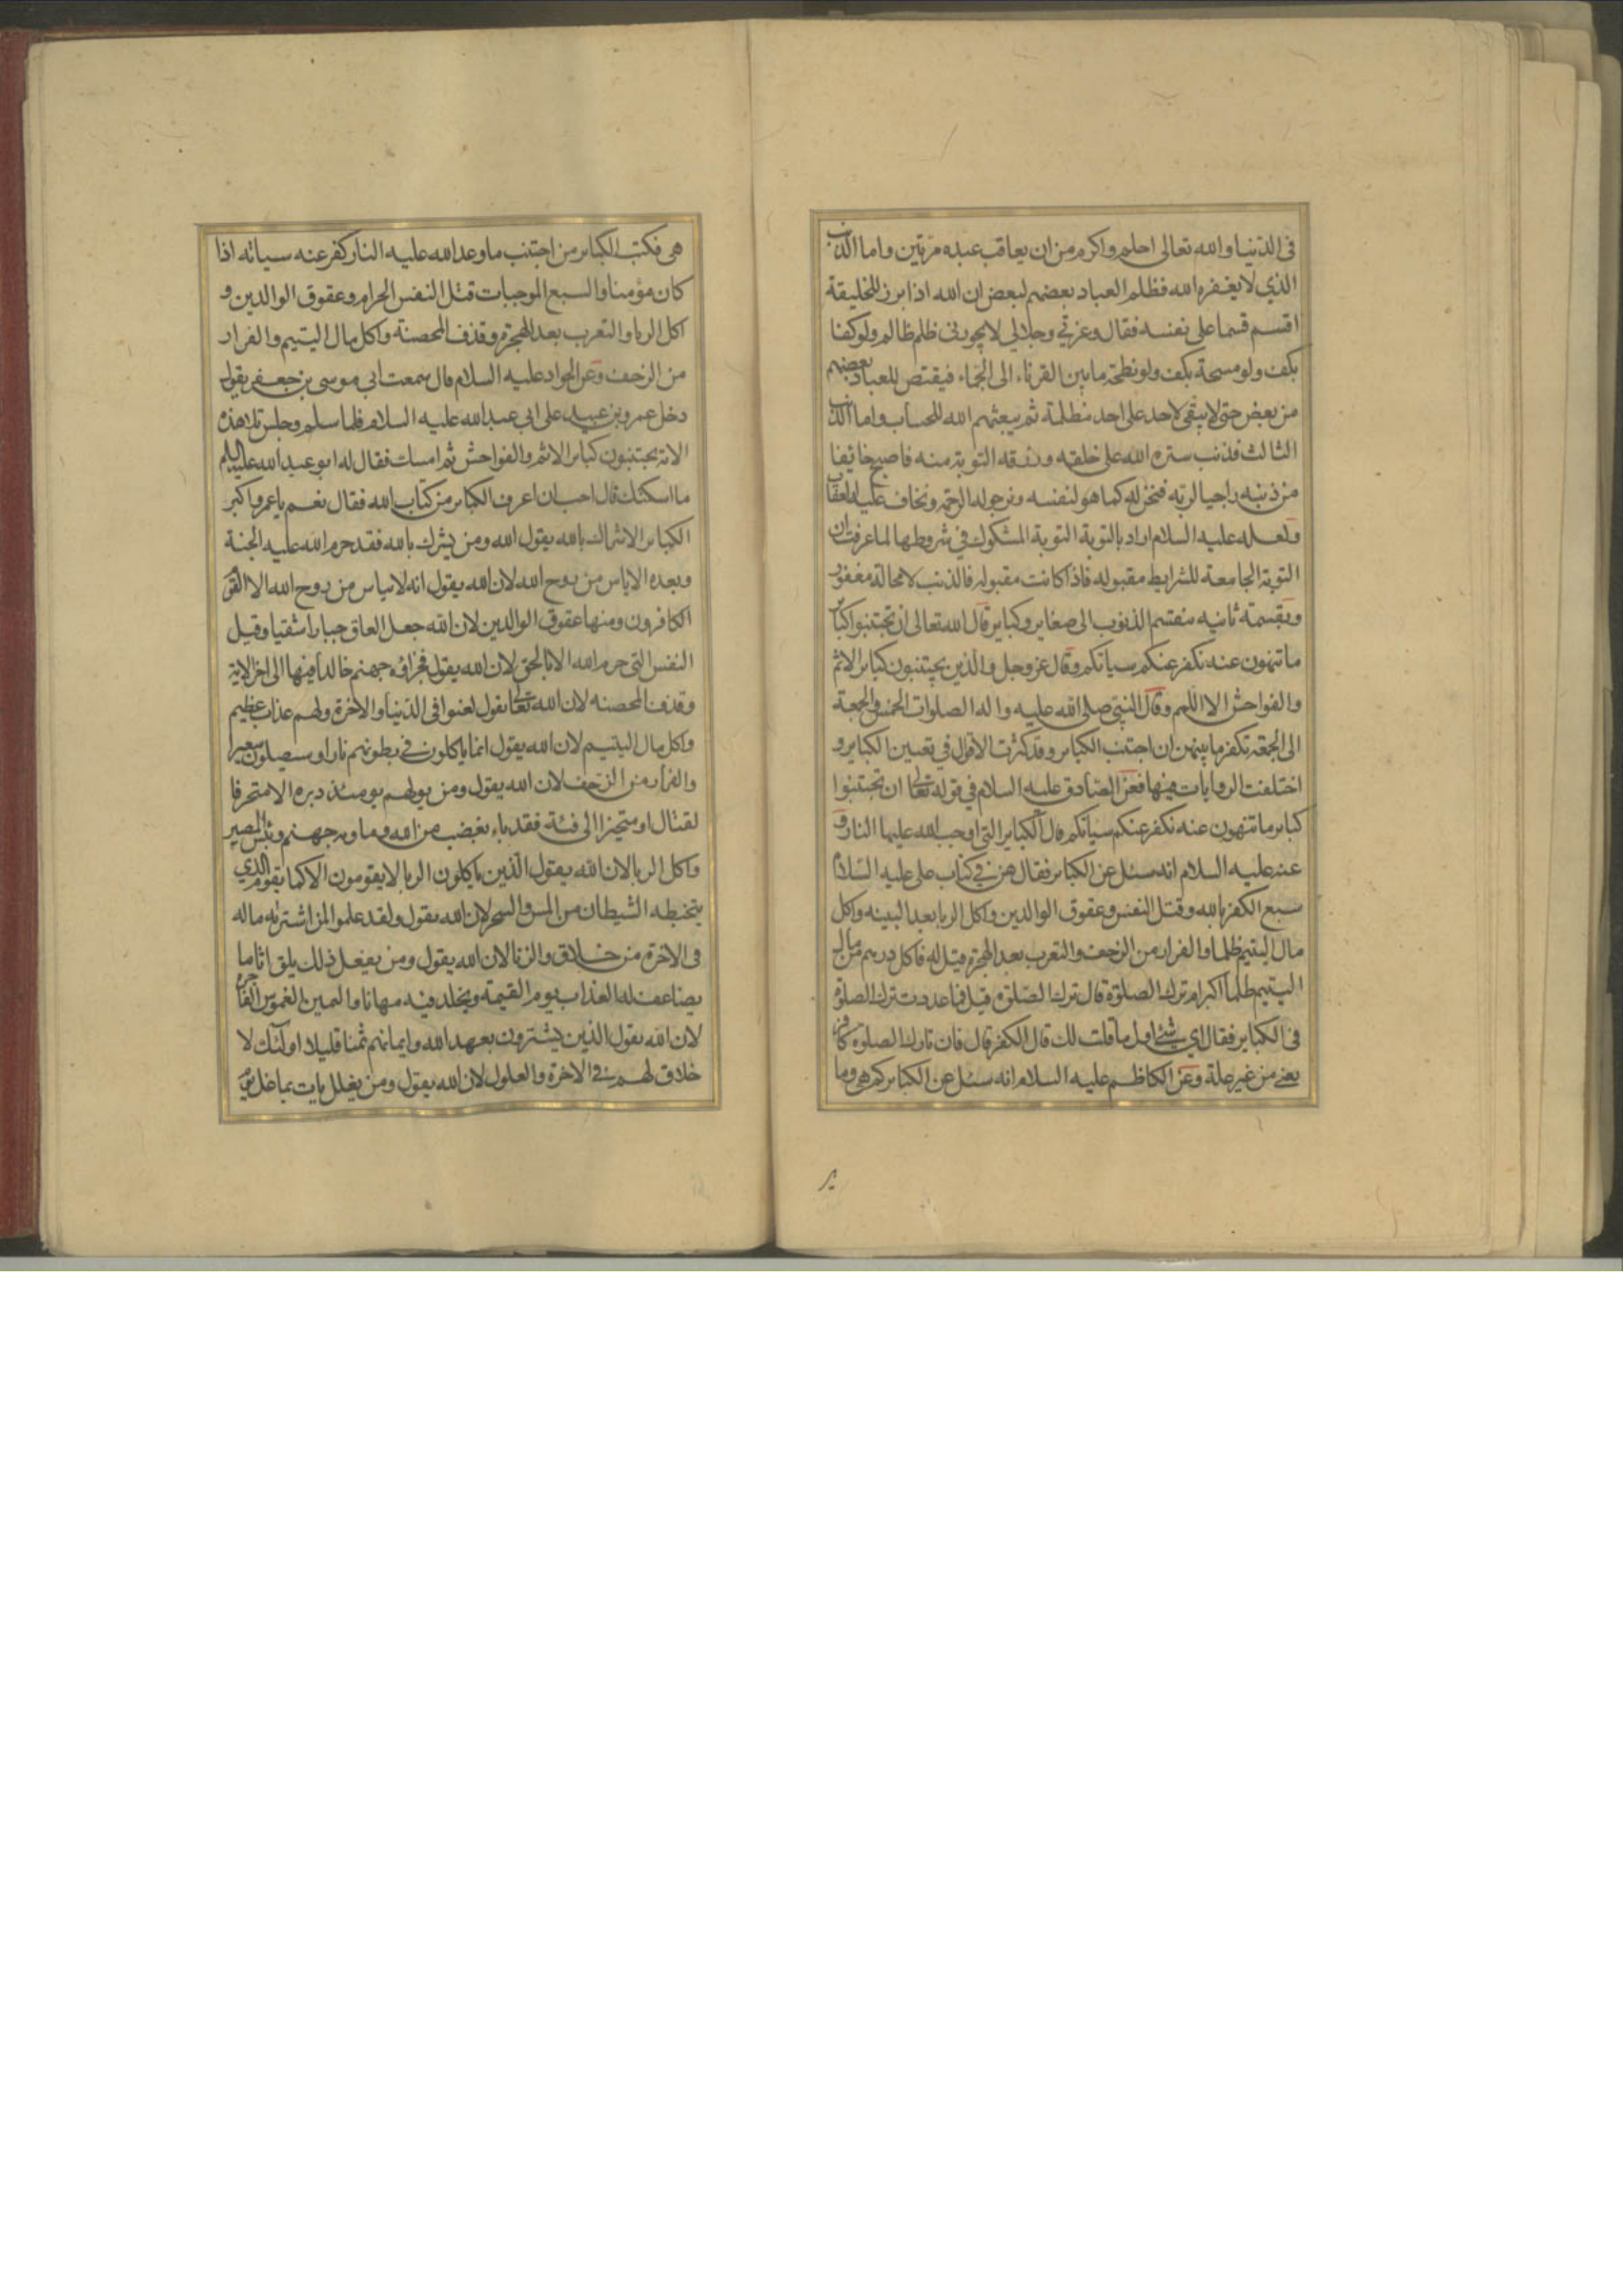 فى الدنيا والله تعالى احلم واكرم من ان يعاقب عبده مرتين واما الذنب
الذي لا يغفره الله فظلم العباد بعضهم لبعض ان الله اذا برز للخليقة
اقسم قسما على نفسه فقال وعزتي وجلالي لا يجوزنى ظلم ظالم ولو كفا
بكف ولو مسحة بكف ولو نطحة ما بين القرناء الى الجماء فيقتص للعباد بعضهم
من بعض حتى لا يبقى لاحد على احد مظلمة ثم يبعثهم الله للحساب واما الذنب
الثالث فذنب ستره الله على خلقه ورزقه التوبة منه فاصبح خائفا
من ذنبه راجيا لربه فنحن له كما هو لنفسه ونرجو له الرحمة ونخاف عليه العقاب
ولعله عليه السلام اراد بالتوبة التوبة المشكوك في شروطها لما عرفت ان
التوبة الجامعة للشرايط مقبوله فاذا كانت مقبوله فالذنب لا محالة مغفور
وبقسمة ثانيه منقسم الذنوب الى صغاير وكباير قال الله تعالى ان تجتنبوا كبائر
ما تنهون عنه نكفر عنكم سيأتكم وقال عز وجل والذين يجتنبون كبائر الاثم
والفواحش الا اللمم وقال النبي صلى الله عليه واله الصلوات الخمس والجمعة
الى الجمعة تكفر ما بينهن ان اجتنب الكبائر وقد كثرت الاقوال في تعيين الكباير و
اختلفت الروايات فيها فعن الصادق عليه السلام في قوله تعالى ان تجتنبوا
كبائر ما تنهون عنه نكفر عنكم سيأتكم قال الكباير التى اوجب الله عليها النار و
عنه عليه السلام انه سئل عن الكبائر فقال هن في كتاب على عليه السلام
سبع الكفر بالله وقتل النفس وعقوق الوالدين واكل الربا بعد البينه واكل
مال اليتيم ظلما والفرار من الزحف والتعرب بعد الهجرة قيل له فاكل درهم من مال
اليتيم ظلما اكبر ام ترك الصلوة قال ترك الصلوة قيل فما عددت ترك الصلوة
فى الكباير فقال اي شئ اول ما قلت لك قال الكفر قال فان تارك الصلوة كافر
يعنى من غير علة وعن الكاظم عليه السلام انه سئل عن الكبائر كم هى وما
هى فكتب الكبائر من اجتنب ما وعد الله عليه النار كفر عنه سيأته اذا
كان مؤمنا والسبع الموجبات قتل النفس الحرام وعقوق الوالدين و
اكل الربا والتعرب بعد الهجرة وقذف المحصنة واكل مال اليتيم والفرار
من الزحف وعن الجواد عليه السلام قال سمعت ابى موسى بن جعفر يقول
دخل عمرو بن عبيد على ابى عبد الله عليه السلام فلما سلم وجلس تلا هذه
الاية يجتنبون كبائر الاثم والفواحش ثم امسك فقال له ابو عبد الله عليه السلم
ما اسكتك قال احب ان اعرف الكبائر من كتاب الله فقال نعم يا عمرو اكبر
الكبائر الاشراك بالله يقول الله ومن يشرك بالله فقد حرم الله عليه الجنة
وبعده الاياس من روح الله لان الله يقول انه لا ييأس من روح الله الا القوم
الكافرون ومنها عقوق الوالدين لان الله جعل العاق جبارا شقيا وقتل
النفس التى حرم الله الا بالحق لان الله يقول فجزاؤه جهنم خالدا فيها الى اخر الاية
وقذف المحصنه لان الله تعالى يقول لعنوا فى الدنيا والاخرة ولهم عذاب عظيم
واكل مال اليتيم لان الله يقول انما ياكلون في بطونهم نارا وسيصلون سعيرا
والفرار من الزحف لان الله يقول ومن يولهم يومئذ دبره الا متحرفا
لقتال او متحيزا الى فئة فقد باء بغضب من الله وماويه جهنم وبئس المصير
واكل الربا لان الله يقول الذين ياكلون الربا لا يقومون الا كما يقوم الذي
يتخبطه الشيطان من المس والسحر لان الله يقول ولقد علموا لمن اشتريه ماله
فى الاخرة من خلاق والزنا لان الله يقول ومن يفعل ذلك يلق اثاما
يضاعف له العذاب يوم القيمة ويخلد فيه مهانا واليمين الغموس الفاجرة
لان الله يقول الذين يشترون بعهد الله وايمانهم ثمنا قليلا اولئك لا
خلاق لهم في الاخرة والغلول لان الله يقول ومن يغلل يات بما غل يوم